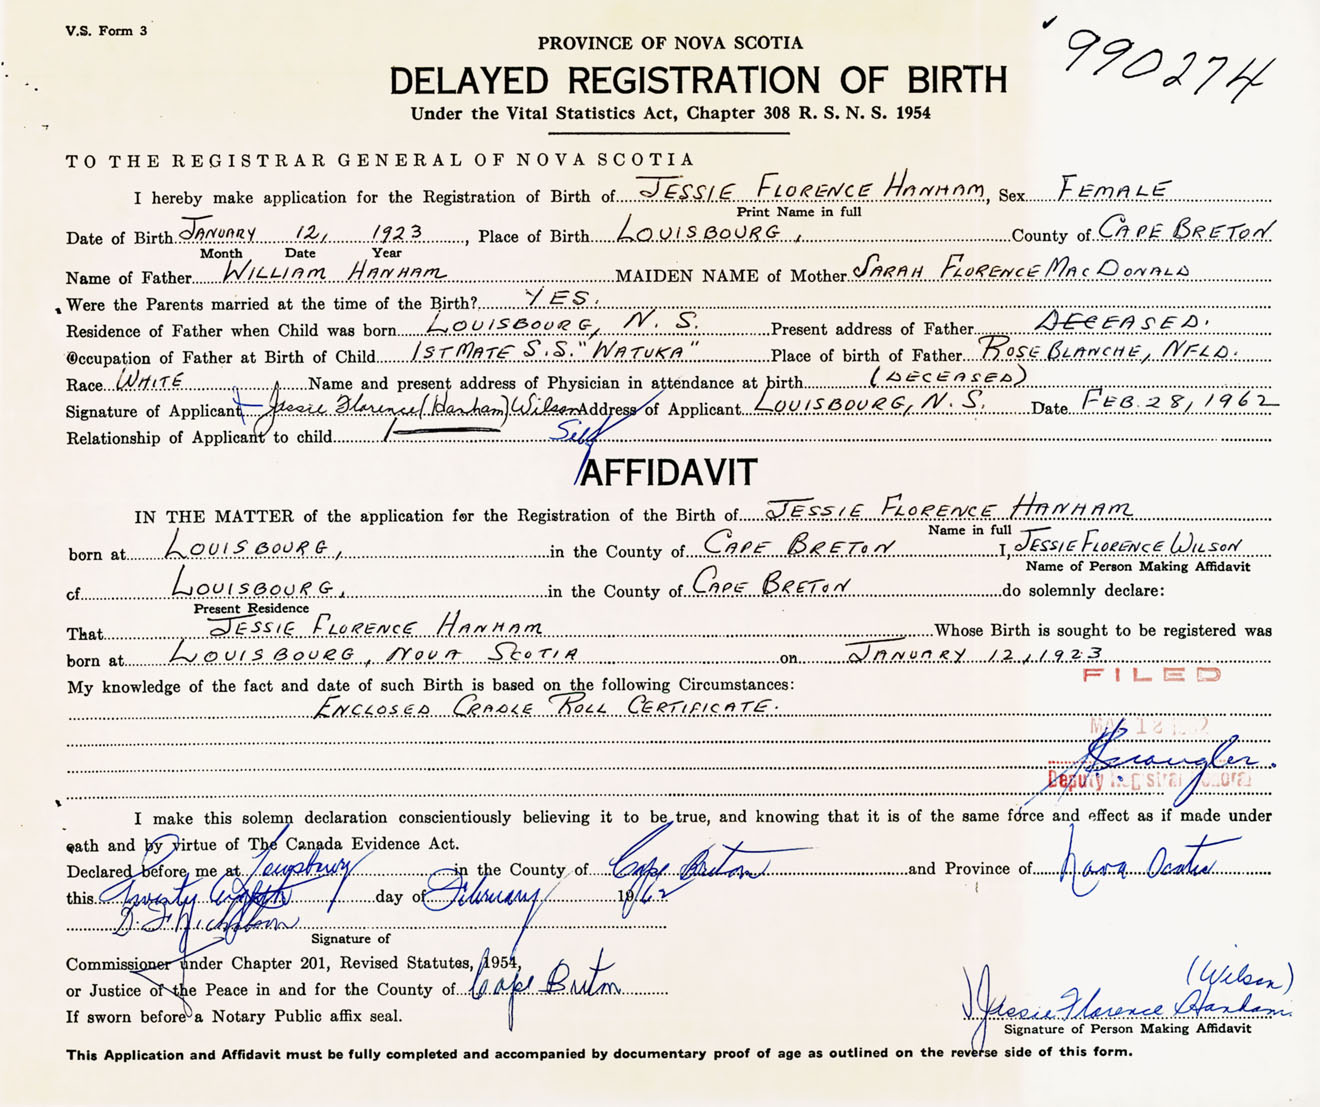 V.S. Form 3
PROVINCE OF NOVA SCOTIA
990274
DELAYED REGISTRATION OF BIRTH
Under the Vital Statistics Act, Chapter 308 R. S. N. S. 1954
TO THE REGISTRAR GENERAL OF NOVA SCOTIA
I hereby make application for the Registration of Birth of JESSIE FLORENCE HANHAM, Sex FEMALE
Print Name in full
Date of Birth JANUARY 12, 1923, Place of Birth LOUISBOURG, County of CAPE BRETON
Month Date Year
Name of Father WILLIAM HANHAM MAIDEN NAME of Mother SARAH FLORENCE MACDONALD
Were the Parents married at the time of the Birth? YES.
Residence of Father when Child was born LOUISBOURG, N. S. Present address of Father DECEASED.
Occupation of Father at Birth of Child 1ST MATE S.S. "WATUKA" Place of birth of Father ROSE BLANCHE, NFLD.
Race WHITE Name and present address of Physician in attendance at birth (DECEASED)
Signature of Applicant Jessie Florence (Hanham) Wilson Address of Applicant LOUISBOURG, N. S. Date FEB. 28, 1962
Relationship of Applicant to child Self
AFFIDAVIT
IN THE MATTER of the application for the Registration of the Birth of JESSIE FLORENCE HANHAM
Name in full
born at LOUISBOURG, in the County of CAPE BRETON I, JESSIE FLORENCE WILSON
Name of Person Making Affidavit
of LOUISBOURG, in the County of CAPE BRETON do solemnly declare:
Present Residence
That JESSIE FLORENCE HANHAM Whose Birth is sought to be registered was
born at LOUISBOURG, NOVA SCOTIA on JANUARY 12, 1923
FILED
My knowledge of the fact and date of such Birth is based on the following Circumstances:
ENCLOSED CRADLE ROLL CERTIFICATE.
Deputy Registrar General
I make this solemn declaration conscientiously believing it to be true, and knowing that it is of the same force and effect as if made under
oath and by virtue of The Canada Evidence Act.
Declared before me at Louisburg in the County of Cape Breton and Province of Nova Scotia
this Twenty Eighth day of February 1962
D. F. Nicholson
Signature of
Commissioner under Chapter 201, Revised Statutes, 1954,
or Justice of the Peace in and for the County of Cape Breton
If sworn before a Notary Public affix seal.
(Wilson)
Jessie Florence Hanham
Signature of Person Making Affidavit
This Application and Affidavit must be fully completed and accompanied by documentary proof of age as outlined on the reverse side of this form.